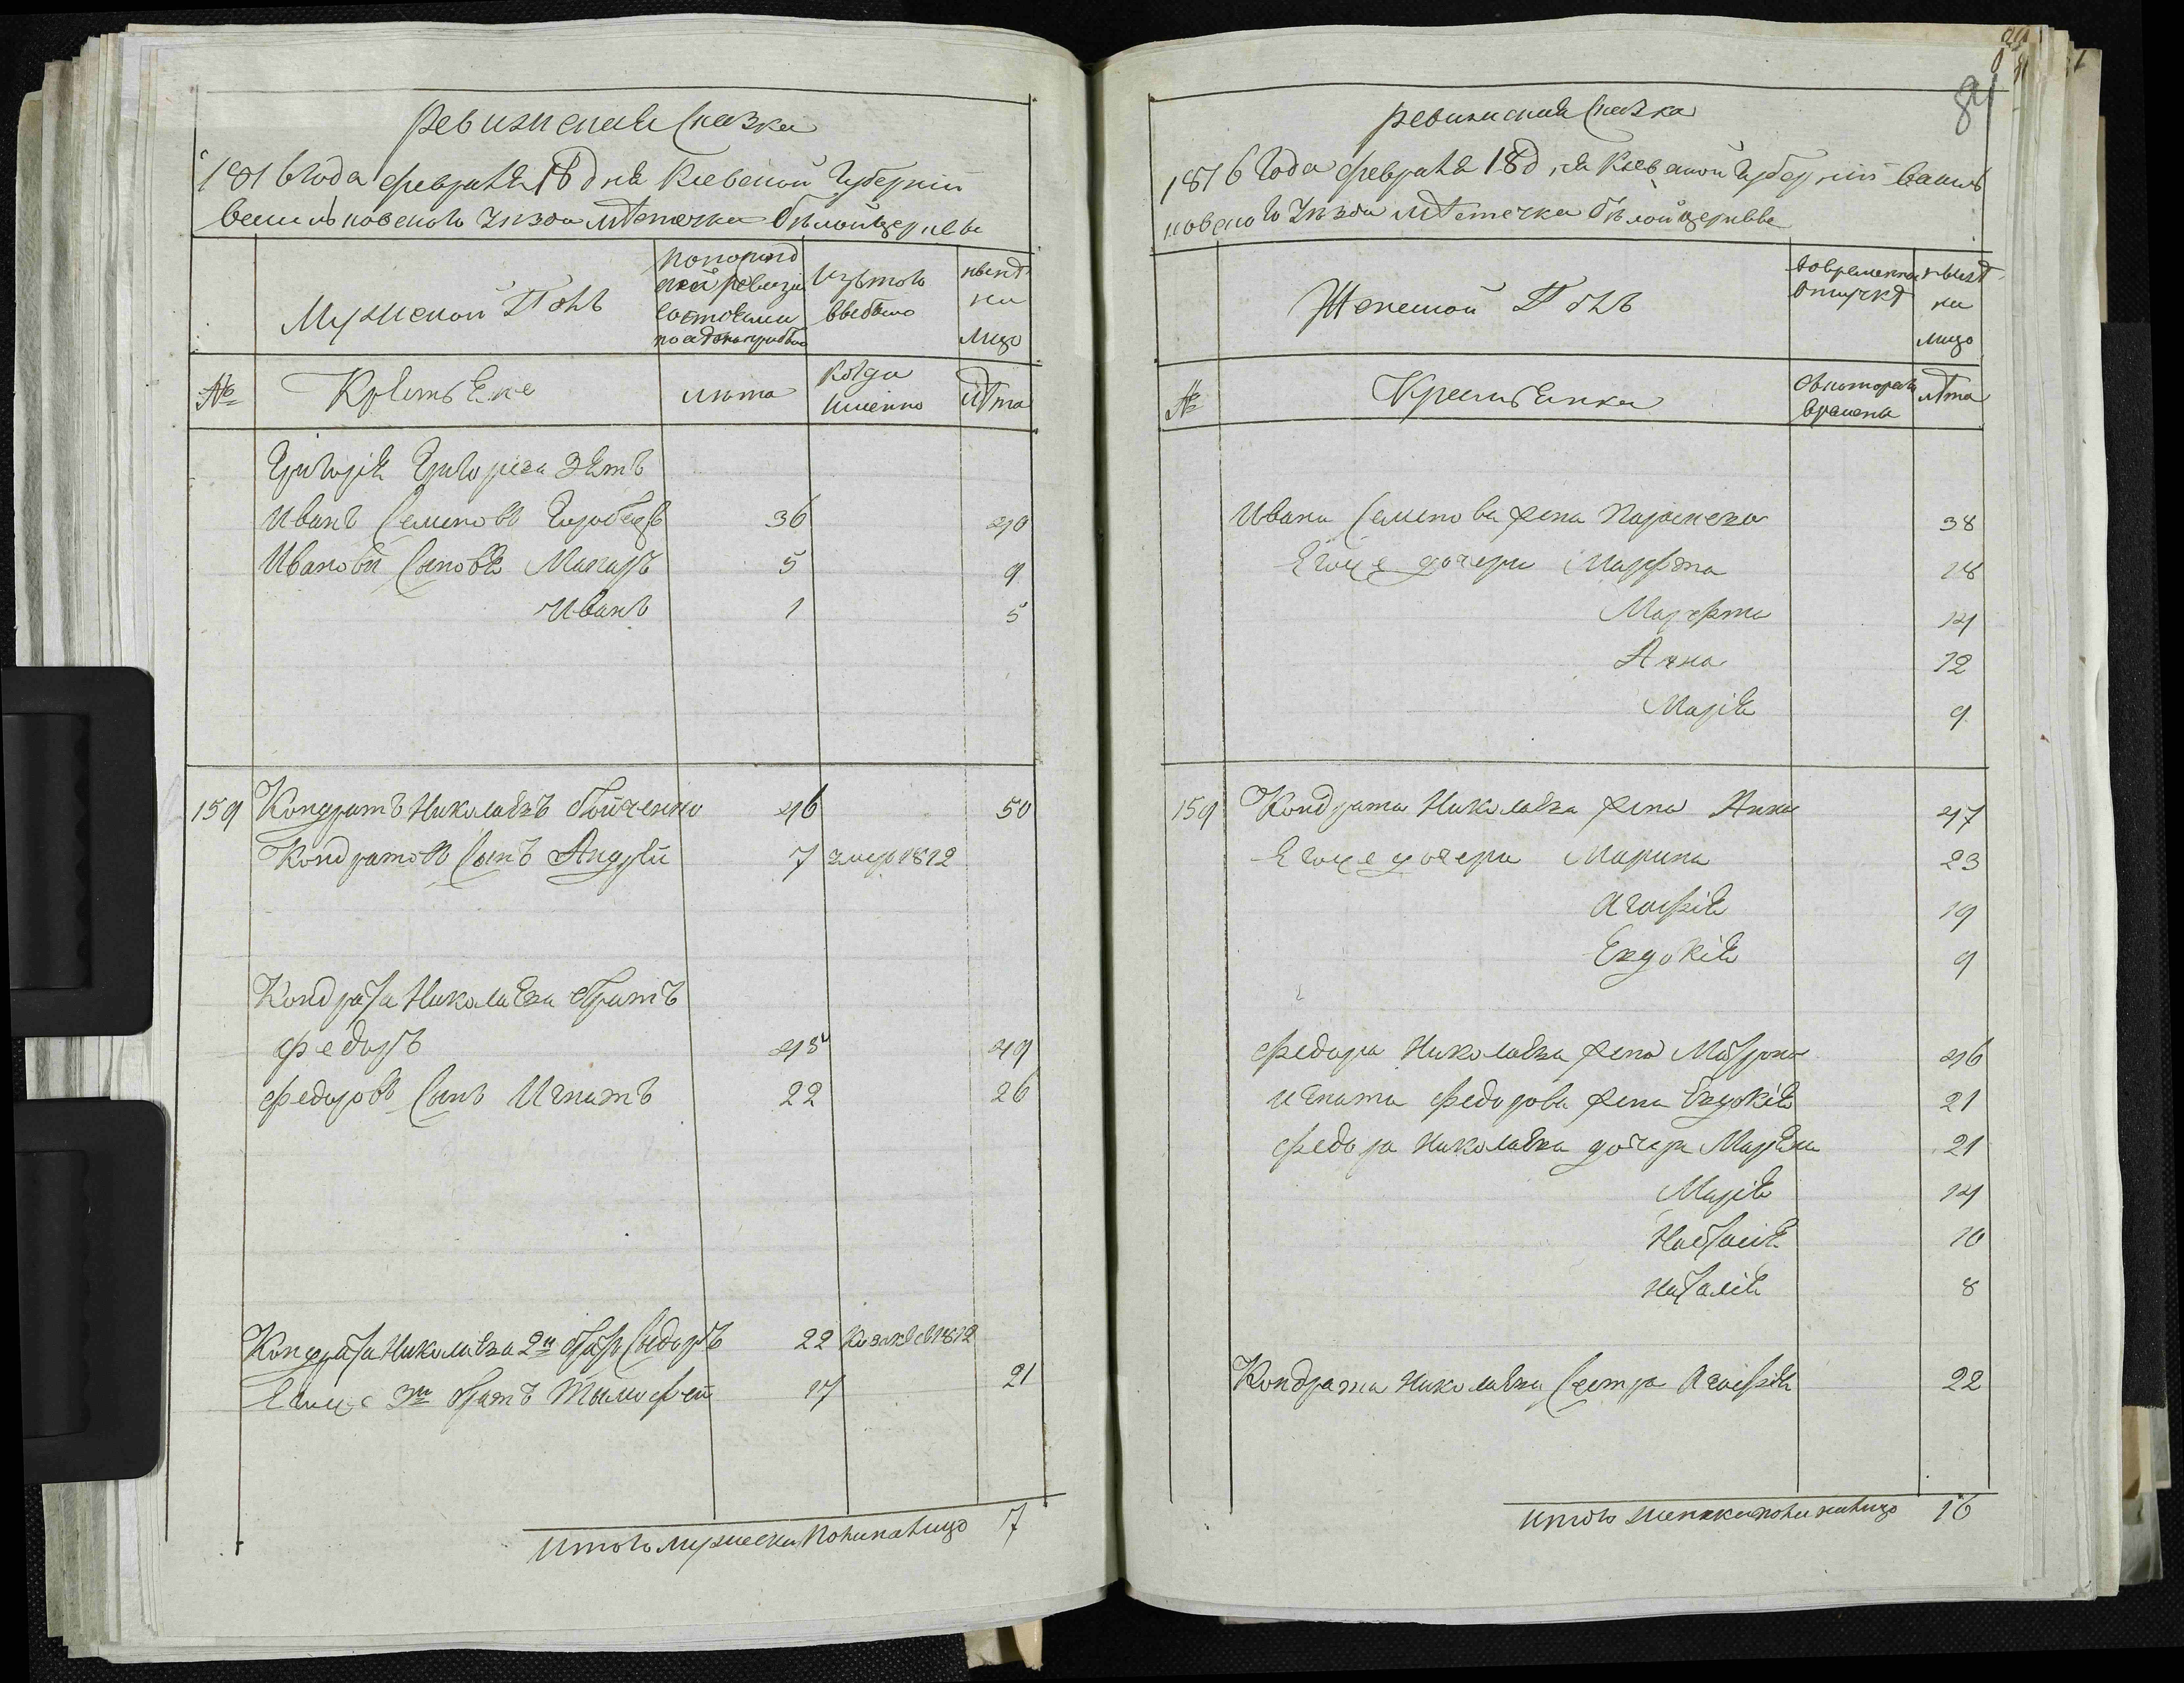 ревизская Сказка
1816 года февраля 18 дня Киевской Губернiи
васильковского Уѣзда мѣстечка бѣлойцерькве
Мужеской Полъ
лѣта
Когда
именно
Изътого
выбыло
нынѣ
на
лицо
лѣта
№
Крестьяне
Григорiя Григорева Зять
Иванъ Семеновъ 36 40
Ивановы Сыновья Макаръ 5 9
Иванъ 1 5
159 Кондратъ Николаевъ бойченко 46 50
Кондратовъ Сынъ Андрей 7 умер 1812
Кондрата Николаева братъ
Федоръ 45 49
Федоровъ Сынъ Игнатъ 22 26
Кондрата Николаева 2й братъ Сидоръ 22 1812
Егоже 3й братъ Тымофей 17 21
Итого мужеска пола налицо 7
84
ревизская Сказка
1816 Года февраля 18 дня Киевской Губернiи василь
ковского Уѣзда мѣстечка бѣлойцерькве
Женской Полъ
вовременной
отлучкѣ
нынѣ
на
лицо
№
Крестьянки
Скоторого
времени
лѣта
Ивана Семенова жена Параскева 38
Егоже дочери Марфа 18
Марфа 14
Анна 12
Марiя 9
159 Кондрата Николаева жена Анна 47
Егоже дочери Марина 23
Агафiя 19
Евдокiя 9
Федора Николаева жена Матрона 46
Игната Федорова жена Евдокiя 21
Федора Николаева дочери Марьяна 21
Марiя 14
Настасiя 10
Наталiя 8
Кондрата Николаева Сестра Агафiя 22
Итого женска пола налицо 16